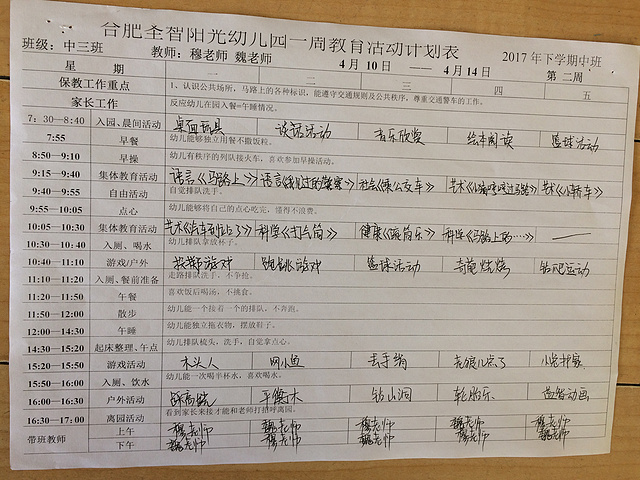 合肥圣智阳光幼儿园一周教育活动计划表
班级：中三班 教师：穆老师 魏老师 4月10日——4月14日 2017年下学期中班 第二周
星期 一 二 三 四 五
保教工作重点 1、认识公共场所，马路上的各种标识，能遵守交通规则及公共秩序，尊重交通警车的工作。
家长工作 反应幼儿在园入餐=午睡情况。
7：30—8:40 入园、晨间活动 桌面玩具 谈话活动 音乐欣赏 绘本阅读 篮球活动
7:55 早餐 幼儿能够独立用餐不撒饭粒。
8:50—9:10 早操 幼儿有秩序的列队接火车，喜欢参加早操活动。
9:15—9:40 集体教育活动 语言《马路上》 社会《乘公交车》
9:40—9:55 自由活动 自觉排队洗手。
9:55—10:05 点心 幼儿能够将自己的点心吃完，懂得不浪费。
10:05—10:30 集体教育活动 科学《打气筒》 科学《马路上的····》 ——
10:30—10:40 入厕、喝水 幼儿排队拿放杯子。
10:40—11:10 游戏/户外 游戏 跳跳游戏 篮球活动 钻爬运动
11:10—11:20 入厕、餐前准备 走路排队洗手，不争抢。
11:20—11:50 午餐 喜欢饭后喝汤，不挑食。
11:50—12:00 散步 幼儿能一个接着一个的排队，不奔跑。
12:00—14:30 午睡 幼儿能独立拖衣物，摆放鞋子。
14:30—15:20 起床整理、午点 幼儿排队梳头，洗手，自觉拿点心。
15:20—15:50 游戏活动 木头人 网小鱼 丢手绢 老狼几点了
15:50—16:00 入厕、饮水 幼儿能一次喝半杯水，喜欢喝水。
16:00—16:30 户外活动 平衡木 钻山洞 轮胎乐
16:30—17:00 离园活动 看到家长来接才能和老师打招呼离园。
带班教师 上午 穆老师 魏老师 穆老师 魏老师 穆老师
下午 魏老师 穆老师 魏老师 穆老师 魏老师